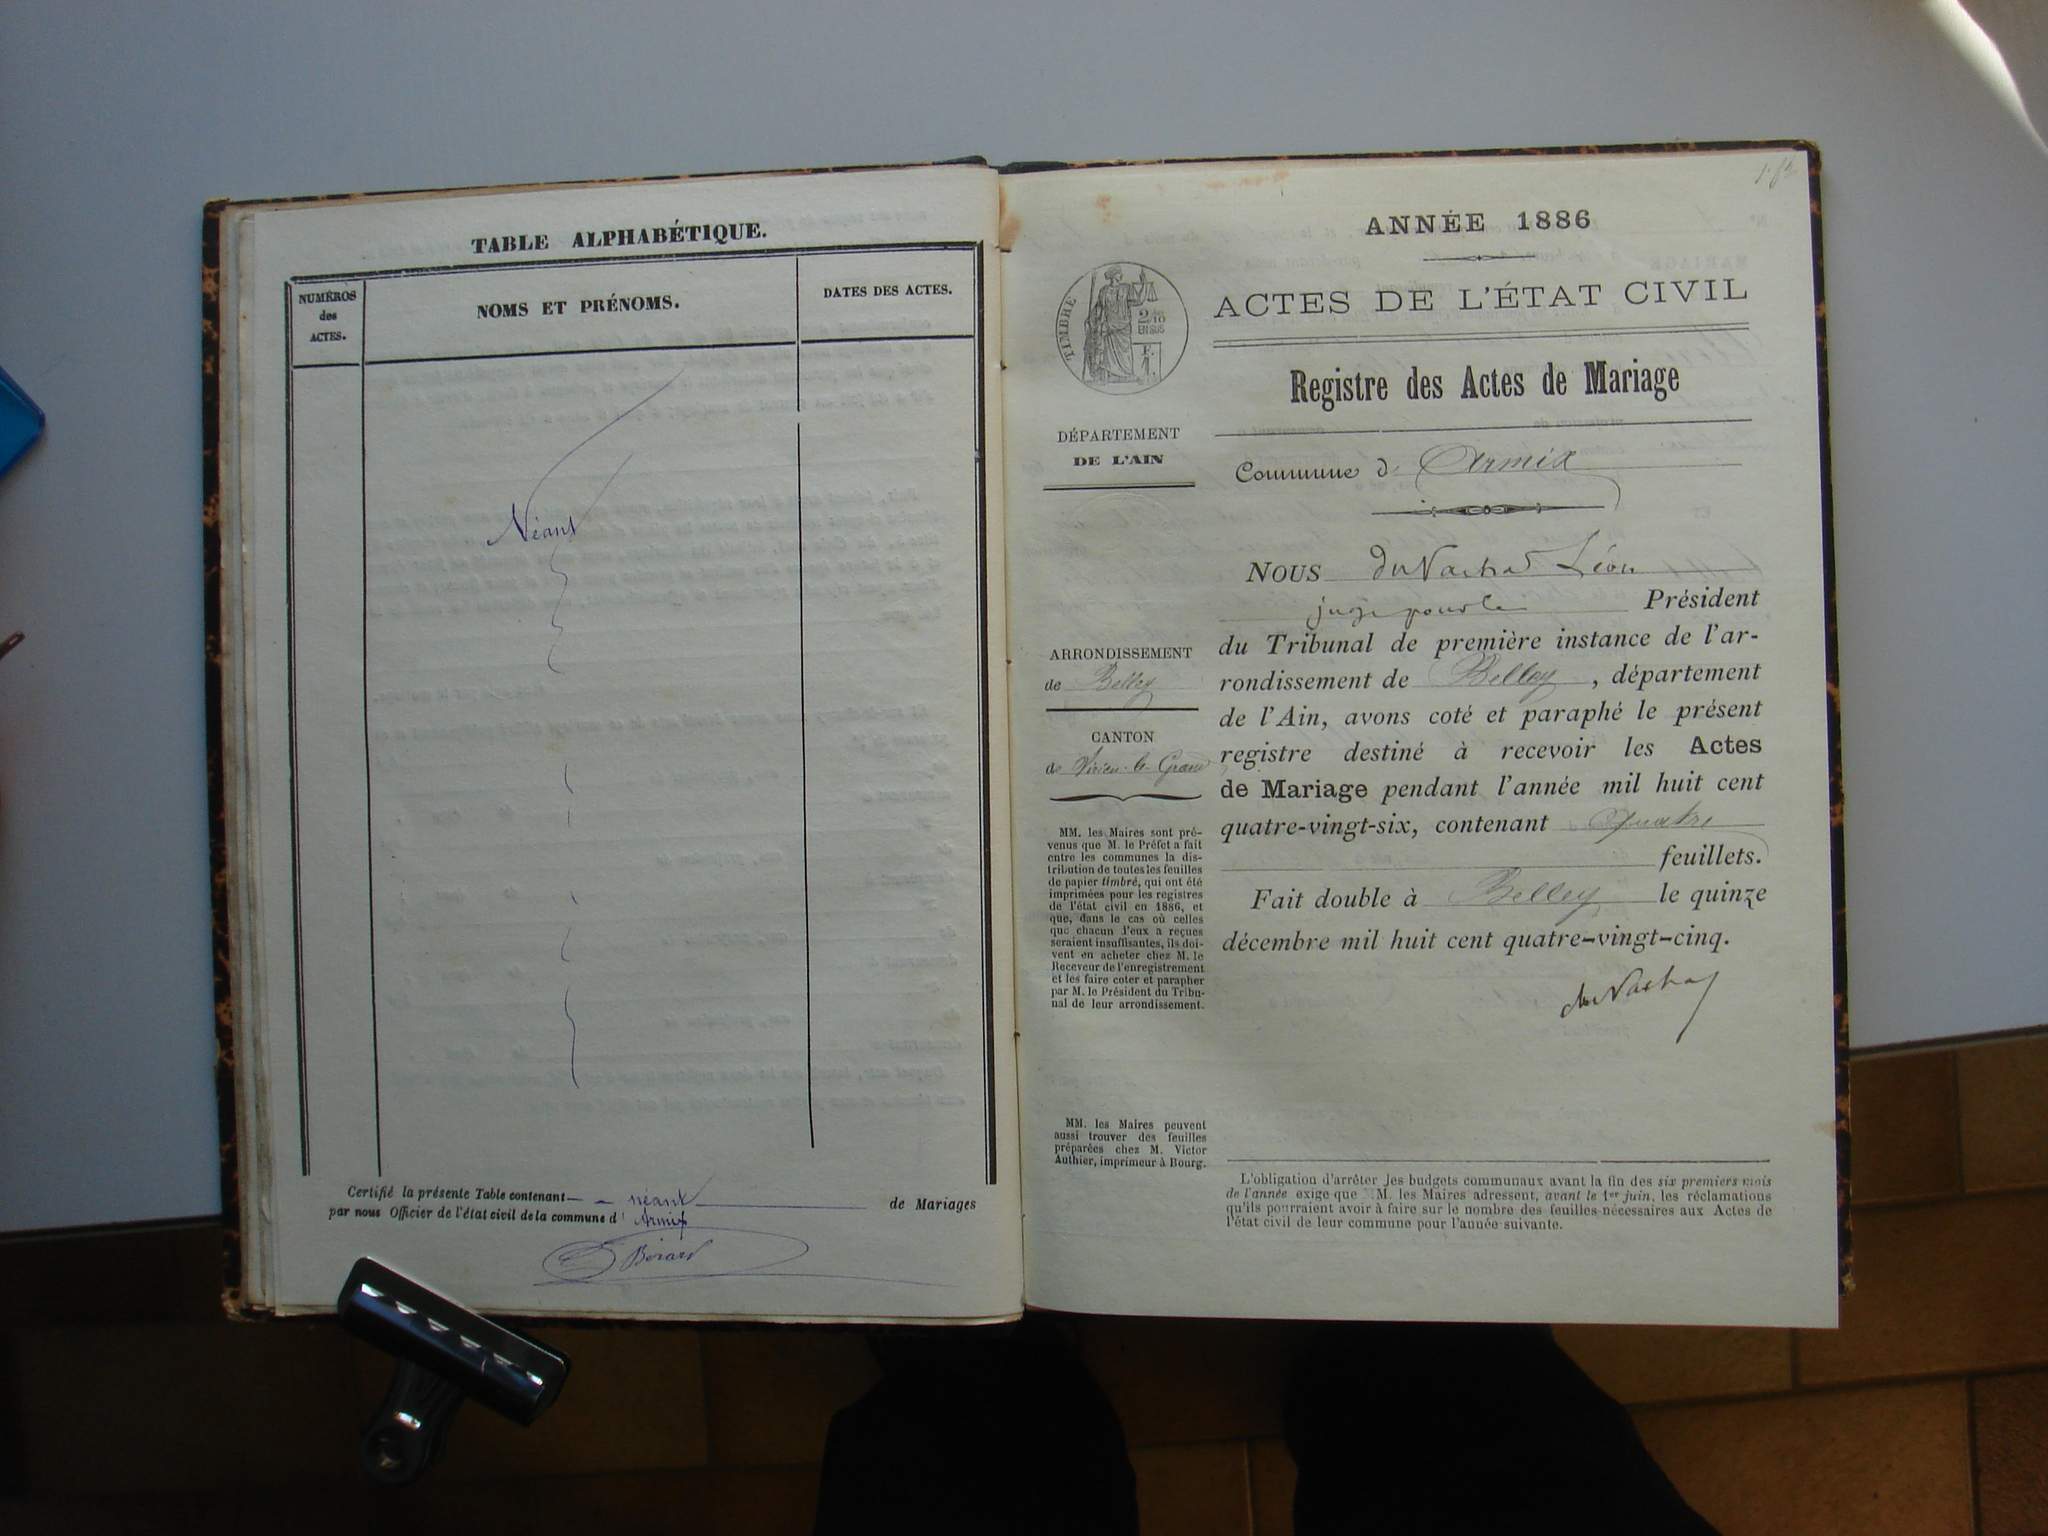 TABLE ALPHABÉTIQUE.
NUMÉROS
des
ACTES.
NOMS ET PRÉNOMS.
DATES DES ACTES.
Néant
Certifié la présente Table contenant néant de Mariages
par nous Officier de l'état civil de la commune d' Armix
ANNÉE 1886
ACTES DE L'ÉTAT CIVIL
TIMBRE
2/10
EN SUS
Registre des Actes de Mariage
DÉPARTEMENT
DE L'AIN
Commune d' Armix
ARRONDISSEMENT
de Belley
CANTON
de Virieu-le-Grand
MM. les Maires sont pré-
venus que M. le Préfet a fait
entre les communes la dis-
tribution de toutes les feuilles
de papier timbré, qui ont été
imprimées pour les registres
de l'état civil en 1886, et
que, dans le cas où celles
que chacun d'eux a reçues
seraient insuffisantes, ils doi-
vent en acheter chez M. le
Receveur de l'enregistrement
et les faire coter et parapher
par M. le Président du Tribu-
nal de leur arrondissement.
MM. les Maires peuvent
aussi trouver des feuilles
préparées chez M. Victor
Authier, imprimeur à Bourg.
NOUS Léon
juge pour le Président
du Tribunal de première instance de l'ar-
rondissement de Belley, département
de l'Ain, avons coté et paraphé le présent
registre destiné à recevoir les Actes
de Mariage pendant l'année mil huit cent
quatre-vingt-six, contenant quatre
feuillets.
Fait double à Belley le quinze
décembre mil huit cent quatre-vingt-cinq.
L'obligation d'arrêter les budgets communaux avant la fin des six premiers mois
de l'année exige que MM. les Maires adressent, avant le 1er juin, les réclamations
qu'ils pourraient avoir à faire sur le nombre des feuilles nécessaires aux Actes de
l'état civil de leur commune pour l'année suivante.